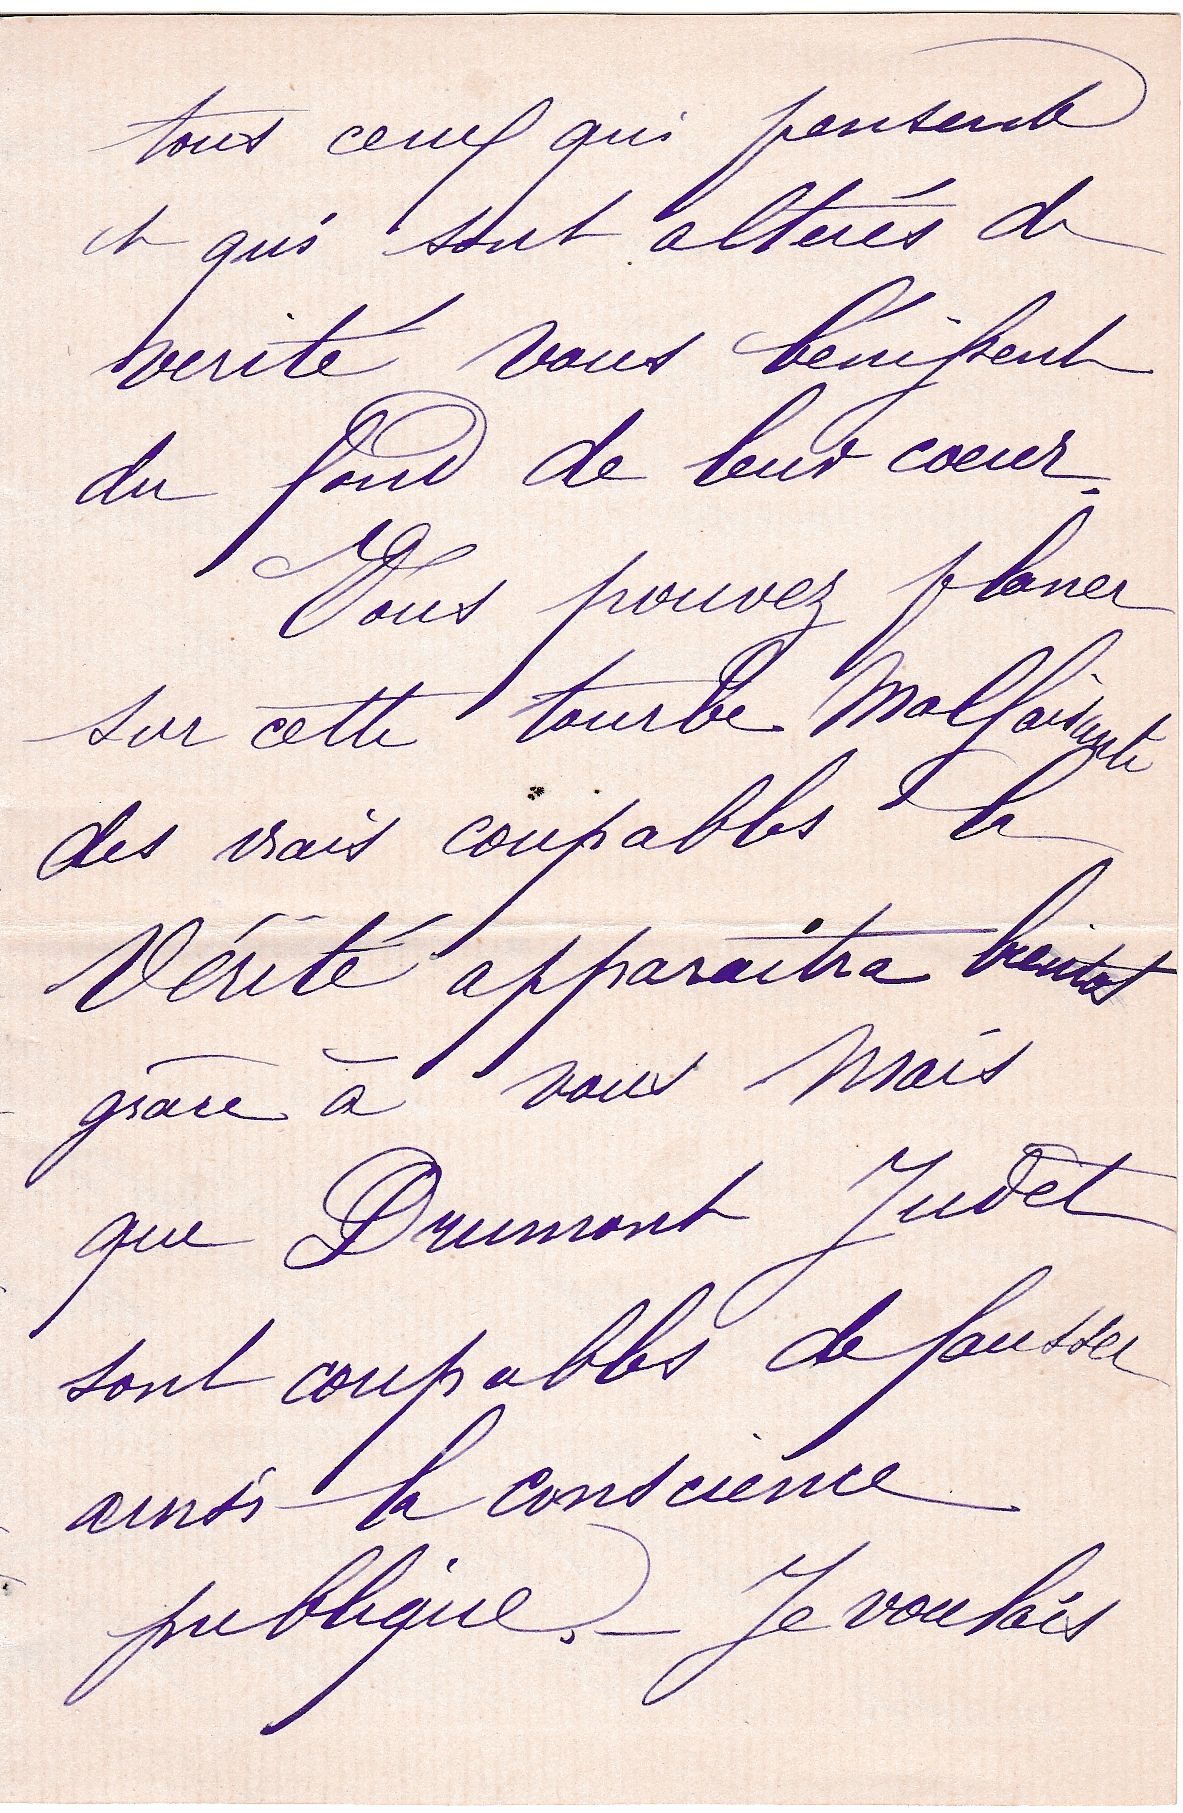 tous ceux qui pensent
et qui sont altérés de
verité vous bénissent
du fond de leur coeur.
Vous pouvez planer
sur cette tourbe malfaisante
des vrais coupables la
Vérité apparaitra bientot
grâce à vous mais
que Drumont Judet
sont coupables de fausser
ainsi la conscience
publique. — Je voulais